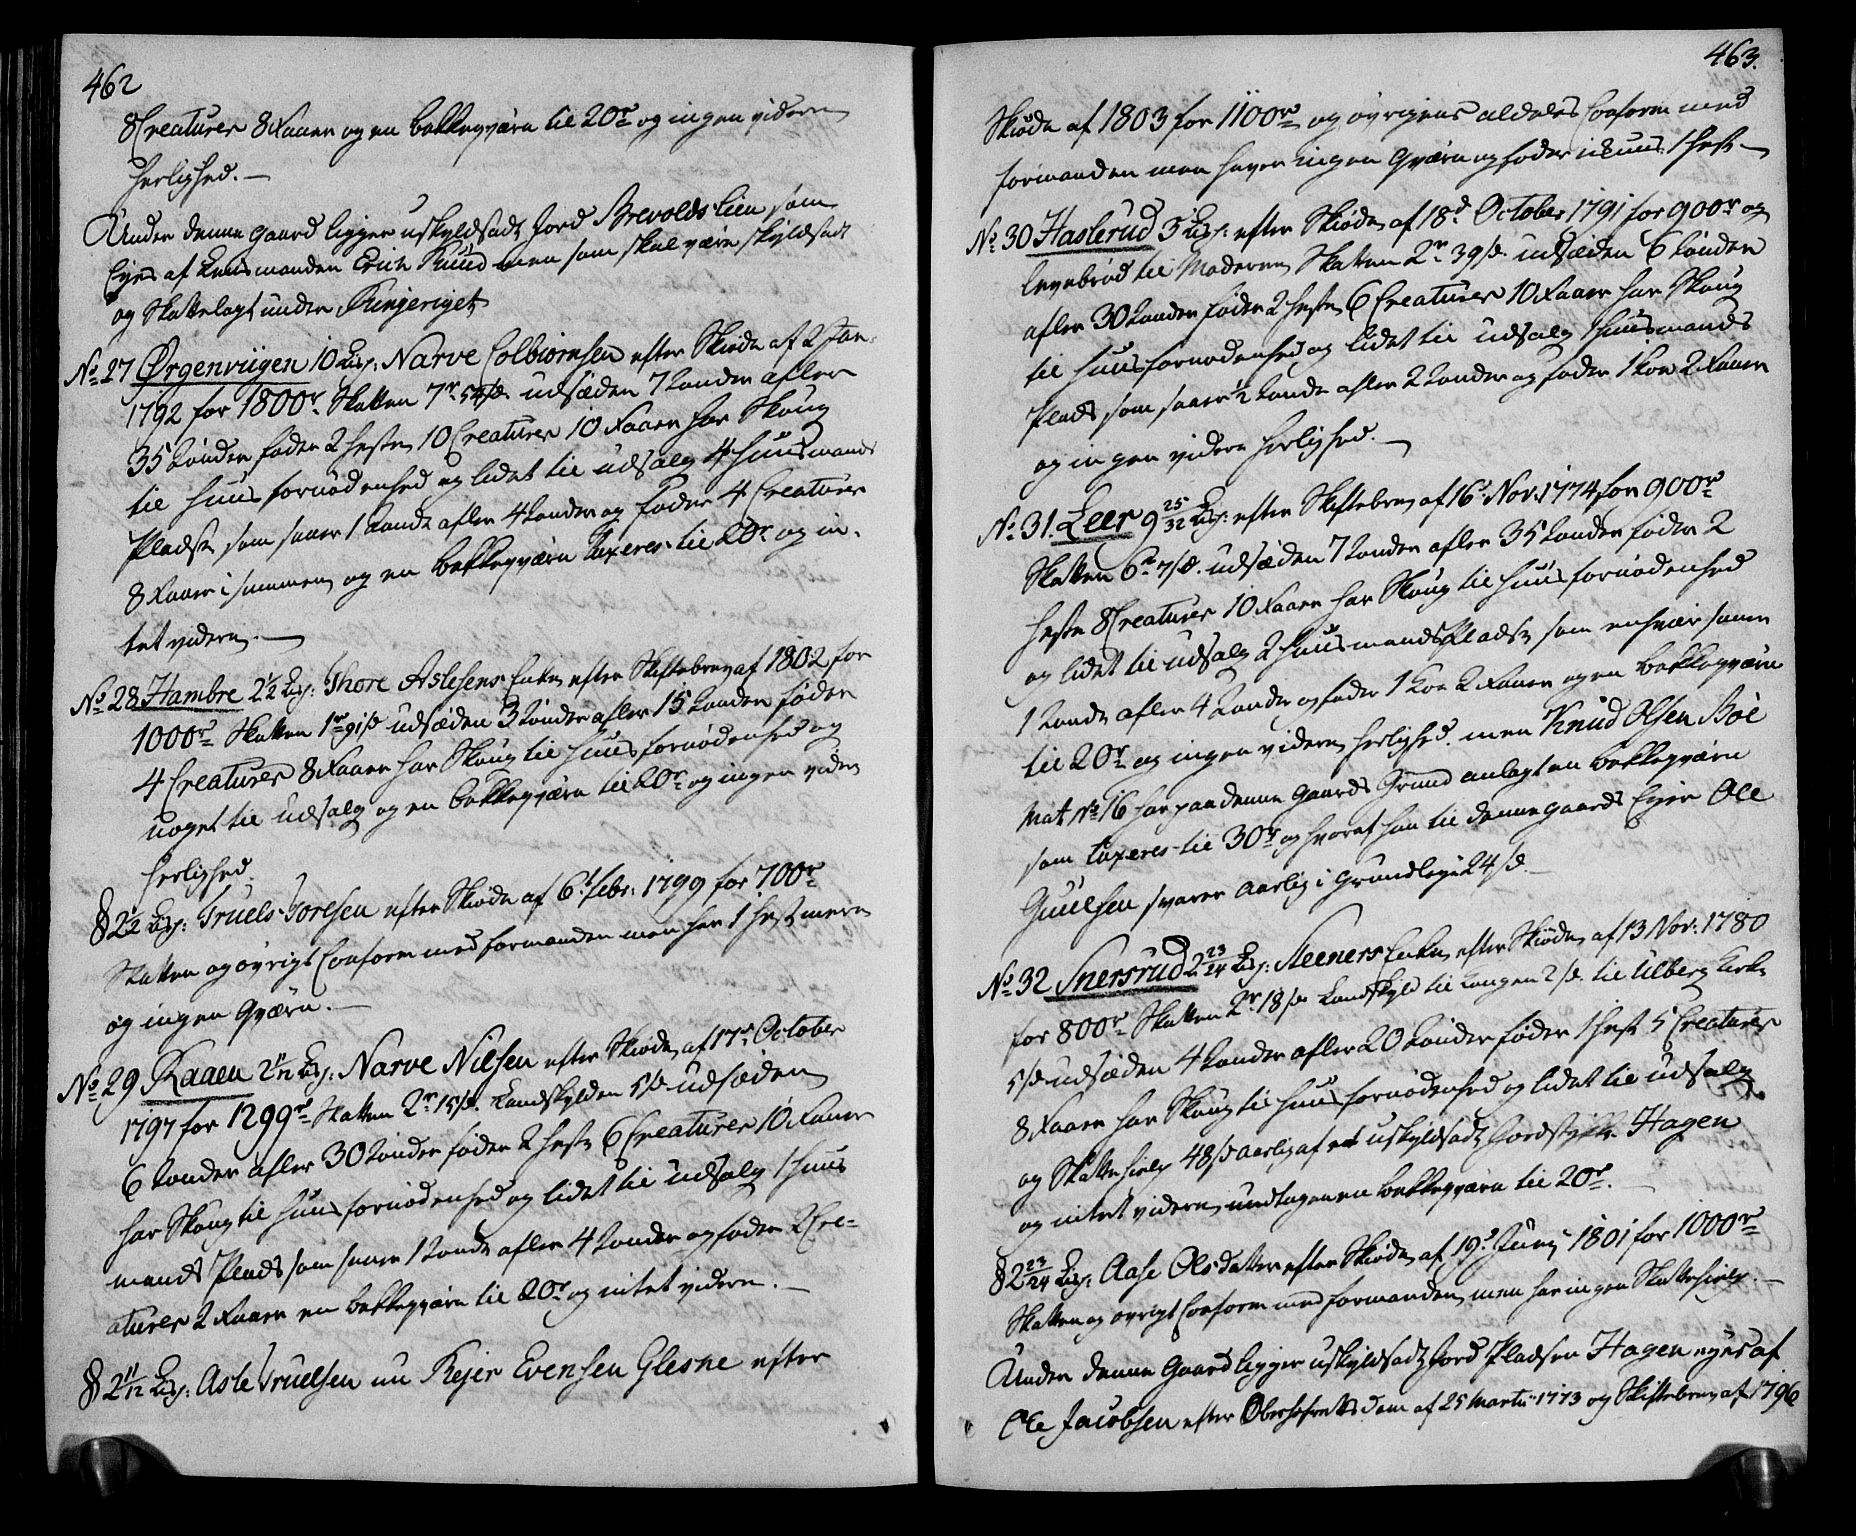 462
8 Creaturer 8 Faarer og en Bekkeqværn til 20r og ingen videre
Herlighed. —
Under denne Gaard ligger uskyldsadt Jord Brevolds Lien som
Eyes af Lensmanden Erich Ruud men som skal være skyldsadt
og Skattelagt under Ringeriget
No 27 Ørgenviigen 10 Lisp: Narve Colbiørnsen efter Skiøde af 2 Jan:
1792 for 1800r Skatten 7r 54s. udsæden 7 Tønder afler
35 Tønder føder 2 Heste 10 Creaturer 10 Faarer har Skoug
til Huus fornødenhed og lidet til udsalg 4 Huusmands
Pladse som saaer 1 Tønde afler 4 Tønder og føder 4 Creaturer
8 Faarer i sammen og en Bekkeqværn taxeres til 20r og in-
tet videre. —
No 28 Hambre 2½ Lisp: Thore Aslesens Enke efter Skiftebrev af 1802 for
1000r Skatten 1r 91s udsæden 3 Tønder afler 15 Tønder føder
4 Creaturer 8 Faarer har Skoug til Huus fornødenhed og
noget til udsalg og en Bekkeqværn til 20r og ingen videre
Herlighed.
§ 2½ Lisp: Truels Toresen efter Skiøde af 6t Febr: 1799 for 700r
Skatten og øvrigt Conform med formanden men har 1 Hest mere
og ingen Qværn. —
No 29 Raaen 2 11/12 Lisp: Narve Nilsen efter Skiøde af 17d October
1797 for 1299r Skatten 2r 15s. Landskylden 5s udsæden
6 Tønder afler 30 Tønder føder 2 Heste 6 Creaturer 10 Faarer
har Skoug til Huus fornødenhed og lidet til udsalg 1 Huus
mands Plads som saaer 1 Tønde afler 4 Tønder og føder 2 Cre-
aturer 2 Faarer en Bekkeqværn til 20r og intet videre. —
§ 2 11/12 Lisp: Asle Truelsen nu Rejer Evensen Glesne efter
463.
Skiøde af 1803 for 1100r og øvrigens aldeles Conform med
formanden men haver ingen Qværn og føder ikkuns 1 Hest —
No 30 Haslerud 3 Lisp: efter Skiøde af 18d October 1791 for 900r og
levebrød til Moderen Skatten 2r 39s. udsæden 6 Tønder
afler 30 Tønder føder 2 Heste 6 Creaturer 10 Faarer har Skoug
til Huus fornødenhed og lidet til udsalg 1 Huusmands
Plads som saaer ½ Tønde afler 2 Tønder og føder 1 Koe 2 Faarer
og ingen videre Herlighed. —
No 31. Leer 9 25/32 Lisp: efter Skiftebrev af 16t Nov. 1774 for 900r
Skatten 6r 7s. udsæden 7 Tønder afler 35 Tønder føder 2
Heste 8 Creaturer 10 Faarer har Skoug til Huus fornødenhed
og lidet til udsalg 2 Huusmands Pladse som enhver saaer
1 Tønde afler 4 Tønder og føder 1 Koe 2 Faarer og en Bekkeqværn
til 20r og ingen videre Herlighed. men Knud Olsen Bøe
Mat No 16 har paa denne Gaards Grund anlagt en Bekkeqværn
som taxeres til 30r og hvoraf han til denne Gaards Ejer Ole
Guulsen svarer aarlig i Grundleye 24s. —
No 32 Snersrud 2 23/24 Lisp: Steeners Enke efter Skiøde af 13 Nov: 1780
for 800r Skatten 2r 18s Landskyld til Kongen 2s. til Ulberg Kirke
5s udsæden 4 Tønder afler 20 Tønder føder 1 Hest 5 Creaturer
8 Faarer har Skoug til Huus fornødenhed og lidet til udsalg
og Skattehielp 48s aarlig af et uskyldsadt Jordstykke Hagen
og intet videre undtagen en Bekkeqværn til 20r. —
§ 2 23/24 Lisp: Aase Olsdatter efter Skiøde af 19d Junj 1801 for 1000r
Skatten og øvrigt Conform med formanden men har ingen Skattehielp. —
Under denne Gaard ligger uskyldsadt Jord Pladsen Hagen eyes af
Ole Jacobsen efter Oberhofretts dom af 25 Martii 1773 og Skiftebrev af 1796